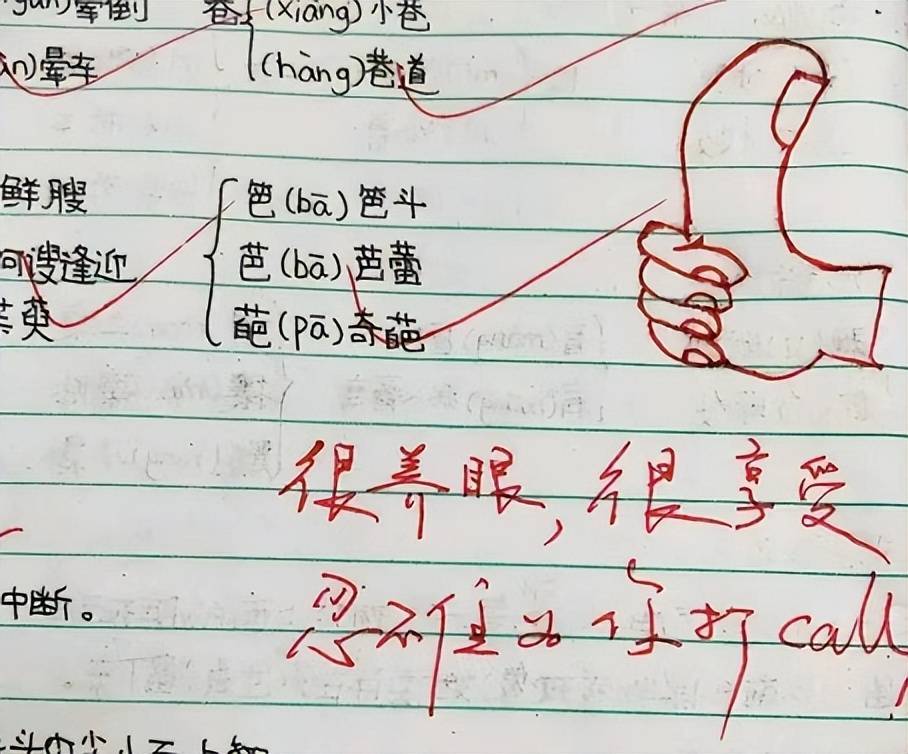 晕倒 巷 (xiàng) 小巷
晕车 (hàng) 巷道
鲜艘
笆 (bā) 笆斗
逢迎 芭 (bā) 芭蕾
萸 葩 (pā) 奇葩
很养眼,很享受
忍不住为你打call
中断。